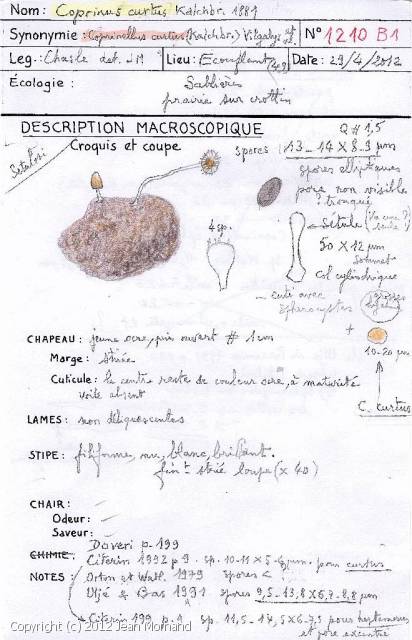 Nom: Coprinus curtus Kalchbr. 1881
Synonymie: Coprinellus curtus (Kalchbr.) Vilgalys et al. N° 1210 B1
Leg.: Chasle det. JM Lieu: Ecouflant (49) Date: 29/4/2012
Écologie: Sablières
prairie sur crottin
DESCRIPTION MACROSCOPIQUE Q # 1,5
Croquis et coupe spores 13-14 X 8-9 µm
Setulosi
spores elliptiques
pore non visible
? tronqué
4 sp.
Sétule
50 X 12 µm
sommet
col cylindrique
cuti avec
sphérocystes
+
10-20 µm
C. curtus
CHAPEAU: jeune ocre, puis # 1 cm
Marge: striée
Cuticule: le centre reste de couleur ocre, à maturité
voile absent
LAMES: non déliquescentes
STIPE: filiforme, nu, blanc, brillant.
fint striée loupe (x 40)
CHAIR:
Odeur: -
Saveur: -
CHIMIE: Doveri p. 199
Citerin 1992 p 9. sp. 10-11 X 5-6 µm. pour curtus
NOTES: Orton et Watl. 1979 spores <
Uljé & Bas 1991 spores 9,5-13,8 X 6,7-8,8 µm
Citerin 199 p. 9 sp. 11,5-14,5 X 6-7,5 pour
et pore excentré
Copyright (c) 2012 Jean Mornand